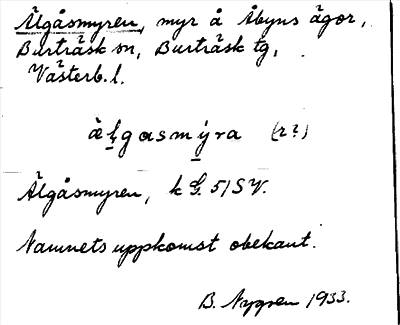 Älgåsmyren, myr å Åbyns ägor,
Burträsk sn, Burträsk tg,
Västerb. l.
älgasmýra (r?)
Älgåsmyren, k G. 51 SV.
Namnets uppkomst obekant.
B. Nygren 1933.